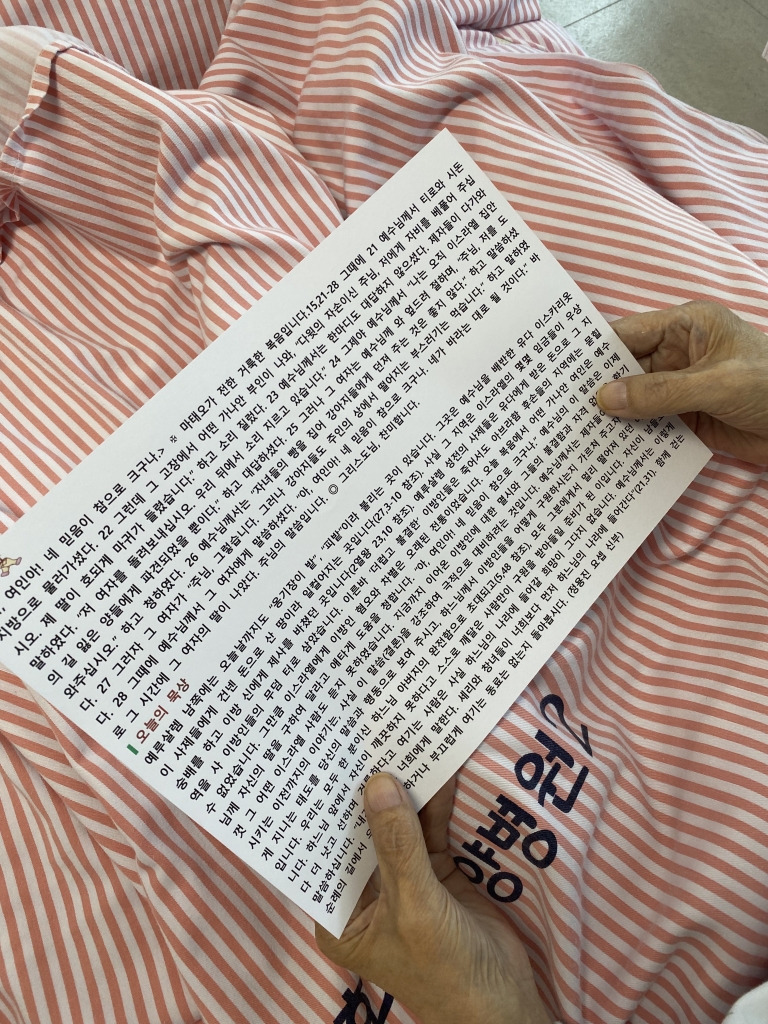 , 여인아! 네 믿음이 참으로 크구나.> ※ 마태오가 전한 거룩한 복음입니다.15,21-28 그때에 21 예수님께서 티로와 시돈
지방으로 물러가셨다. 22 그런데 그 고장에서 어떤 가나안 부인이 나와, "다윗의 자손이신 주님, 저에게 자비를 베풀어 주십
시오. 제 딸이 호되게 마귀가 들렸습니다." 하고 소리 질렀다. 23 예수님께서는 한마디도 대답하지 않으셨다. 제자들이 다가와
말하였다. "저 여자를 돌려보내십시오. 우리 뒤에서 소리 지르고 있습니다." 24 그제야 예수님께서 "나는 오직 이스라엘 집안
의 길 잃은 양들에게 파견되었을 뿐이다." 하고 대답하셨다. 25 그러나 그 여자는 예수님께 와 엎드려 절하며, "주님, 저를 도
와주십시오." 하고 청하였다. 26 예수님께서는 "자녀들의 빵을 집어 강아지들에게 던져 주는 것은 좋지 않다." 하고 말씀하셨
다. 27 그러자 그 여자가 "주님, 그렇습니다. 그러나 강아지들도 주인의 상에서 떨어지는 부스러기는 먹습니다." 하고 말하였
다. 28 그때에 예수님께서 그 여자에게 말씀하셨다. "아, 여인아! 네 믿음이 참으로 크구나. 네가 바라는 대로 될 것이다." 바
로 그 시간에 그 여자의 딸이 나았다. 주님의 말씀입니다. ◎ 그리스도님, 찬미합니다.
오늘의 묵상
예루살렘 남쪽에는 오늘날까지도 "옹기장이 밭", "피밭"이라 불리는 곳이 있습니다. 그곳은 예수님을 배반한 유다 이스카리옷
이 사제들에게 건넨 돈으로 산 땅이라 일컬어지는 곳입니다(27,3-10 참조). 사실 그 지역은 이스라엘의 몇몇 임금들이 우상
숭배를 하고 이방 신에게 제사를 바쳤던 곳입니다(2열왕 23,10 참조). 예루살렘 성전의 사제들은 유다에게 받은 돈으로 그 지
역을 사 이방인들의 무덤 터로 삼았습니다. 이른바 '더럽고 불결한' 이방인들은 죽어서도 아브라함 후손들의 지역에는 묻힐
수 없었습니다. 그만큼 이스라엘에게 이방인 혐오와 차별은 오래된 전통이었습니다. 오늘 복음에서 어떤 가나안 여인은 예수
님께 자신의 딸을 구하여 달라고 애타게 도움을 청합니다. "아, 여인아! 네 믿음이 참으로 크구나." 예수님의 이 말씀은 이제
껏 그 어떤 이스라엘 사람도 듣지 못하였습니다. 지금까지 이어온 이방인에 대한 멸시와 그들의 불결함과 자격
시키는 이전까지의 이야기는, 사실 이 말씀(결론)을 강조하여 극적으로 대비하려는 것입니다. 예수님께서는 제자들
게 지니는 태도를 당신의 말씀과 행동으로 보여 주시고, 하느님께서 이방인들을 어떻게 구원하시는지 가르쳐 주고
입니다. 우리는 모두 한 분이신 하느님 아버지의 완전함으로 초대되고(5,48 참조), 모두 그분에게서 멀리 떨어져 있었
니다. 하느님 앞에서 자신이 깨끗하지 못하다고 스스로 깨달은 사람만이 구원을 받아들일 준비가 된 이입니다. 자신이 남들
다 더 낫고 선하며 여기는 사람은 사실 하느님의 나라에 들어갈 희망이 그다지 없습니다. 예수님께서는 이렇게
말씀하십니다. 너희에게 말한다. 세리와 창녀들이 너희보다 먼저 하느님의 나라에 들어간다"(21,31). 함께 걷는
순례의 길에서 하거나 부끄럽게 여기는 동료는 없는지 돌아봅시다. (정용진 요셉 신부)
양병원